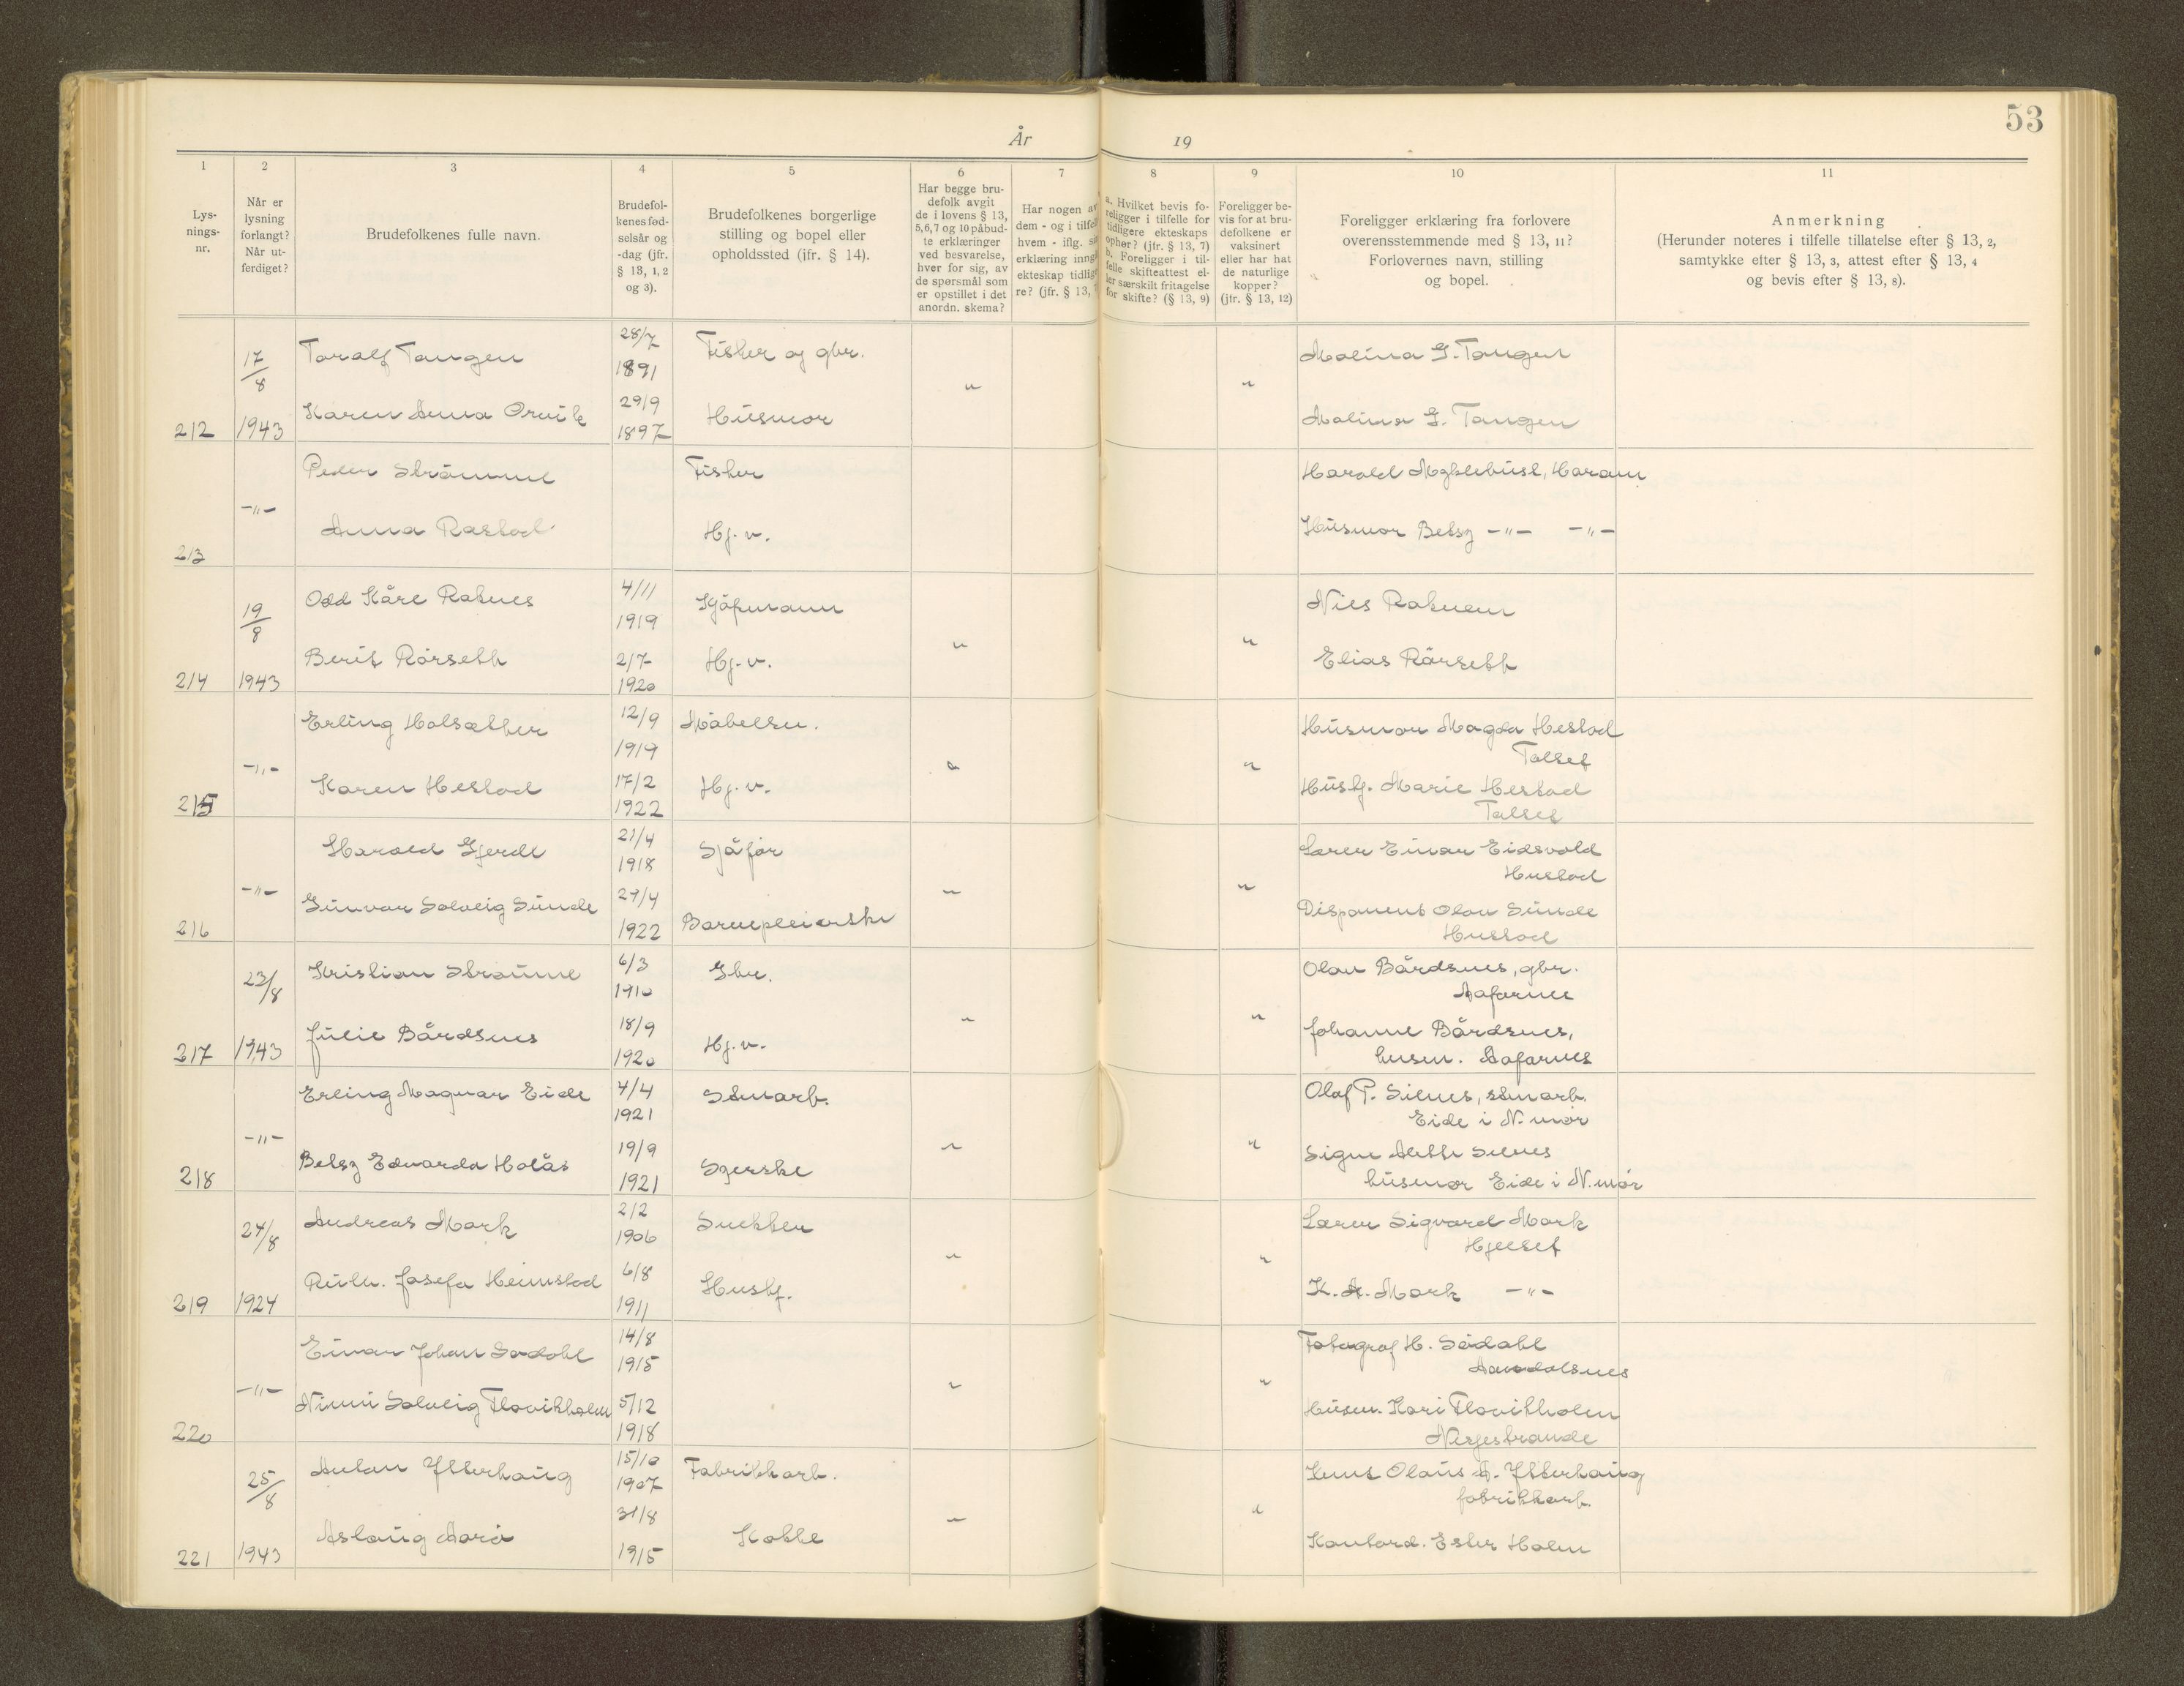 53
År 19
1 2 3 4 5 6 7 8 9 10 11
Lys-
nings-
nr.
Når er
lysning
forlangt?
Når ut-
ferdiget?
Brudefolkenes fulle navn.
Brudefol-
kenes fød-
selsår og
-dag (jfr.
§ 13, 1, 2
og 3).
Brudefolkenes borgerlige
stilling og bopel eller
opholdssted (jfr. § 14).
Har begge bru-
defolk avgit
de i lovens § 13,
5, 6, 7 og 10 påbud-
te erklæringer
ved besvarelse,
hver for sig, av
de spørsmål som
er opstillet i det
anordn. skema?
Har nogen av
dem - og i tilfell
hvem - iflg. si
erklæring inngå
ekteskap tidlig
re? (jfr. § 13,
a. Hvilket bevis fo-
religger i tilfelle for
tidligere ekteskaps
ophør? (jfr. § 13, 7)
b. Foreligger i til-
felle skifteattest el-
ler særskilt fritagelse
for skifte? (§ 13, 9)
Foreligger be-
vis for at bru-
defolkene er
vaksinert
eller har hat
de naturlige
kopper?
(jfr. § 13, 12)
Foreligger erklæring fra forlovere
overensstemmende med § 13, 11?
Forlovernes navn, stilling
og bopel.
Anmerkning
(Herunder noteres i tilfelle tillatelse efter § 13, 2,
samtykke efter § 13, 3, attest efter § 13, 4
og bevis efter § 13, 8).
17/8 Toralf Tangen 28/7 1891 Fisker og gbr. " " Malina G. Tangen
212 1943 Karen Anna Orvik 29/9 1897 Husmor Malina G. Tangen
Peder Strømme Fisker Harald Myklebust, Haram
213 -"- Anna Rastad Hj. v. Husmor Betsy -"- -"-
19/8 Odd Kåre Raknes 4/11 1919 Kjøpmann " " Nils Raknem
214 1943 Berit Rörseth 2/7 1920 Hj. v. Elias Rörseth
Erling Holsæther 12/9 1919 Møbelsn. " " Husmor Magda Hestad
Talset
215 -"- Karen Hestad 17/2 1922 Hj. v. Hush. Marie Hestad
Talset
Harald Gjerde 21/4 1918 Sjåfør " " Lærer Einar Eidsvold
Hustad
216 -"- Gunvor Solveig Sunde 29/4 1922 Barnepleierske Disponent Olav Sunde
Hustad
23/8 Kristian Strømme 6/3 1910 Gbr. " " Olav Bårdsnes, gbr.
Aafarnes
217 1943 Julie Bårdsnes 18/9 1920 Hj. v. Johanne Bårdsnes,
husm. Aafarnes
Erling Magnar Eide 4/4 1921 Stenarb. " " Olaf P. Silnes, stenarb.
Eide i N. mør
218 -"- Betsy Edvarda Holås 19/9 1921 Syerske Signe Silnes
husmor Eide i N. mør
24/8 Andreas Mork 2/2 1906 Snekker " " Lærer Sigvard Mork
Hjelset
219 1924 Ruth. Josefa Heimstad 6/8 1911 Hush. K. A. Mork -"-
Einar Johan Sødahl 14/8 1915 " " Fotograf H. Sødahl
Aandalsnes
220 -"- Nimi Solveig Flovikholm 5/12 1918 Husm. Kari Flovikholm
Nerjestrande
25/8 Anton Ytterhaug 15/10 1907 Fabrikkarb. " " Knut Olaus A. Ytterhaug
fabrikkarb.
221 1943 Aslaug Aarø 31/8 1915 Kokke Kontord. Ester Holm